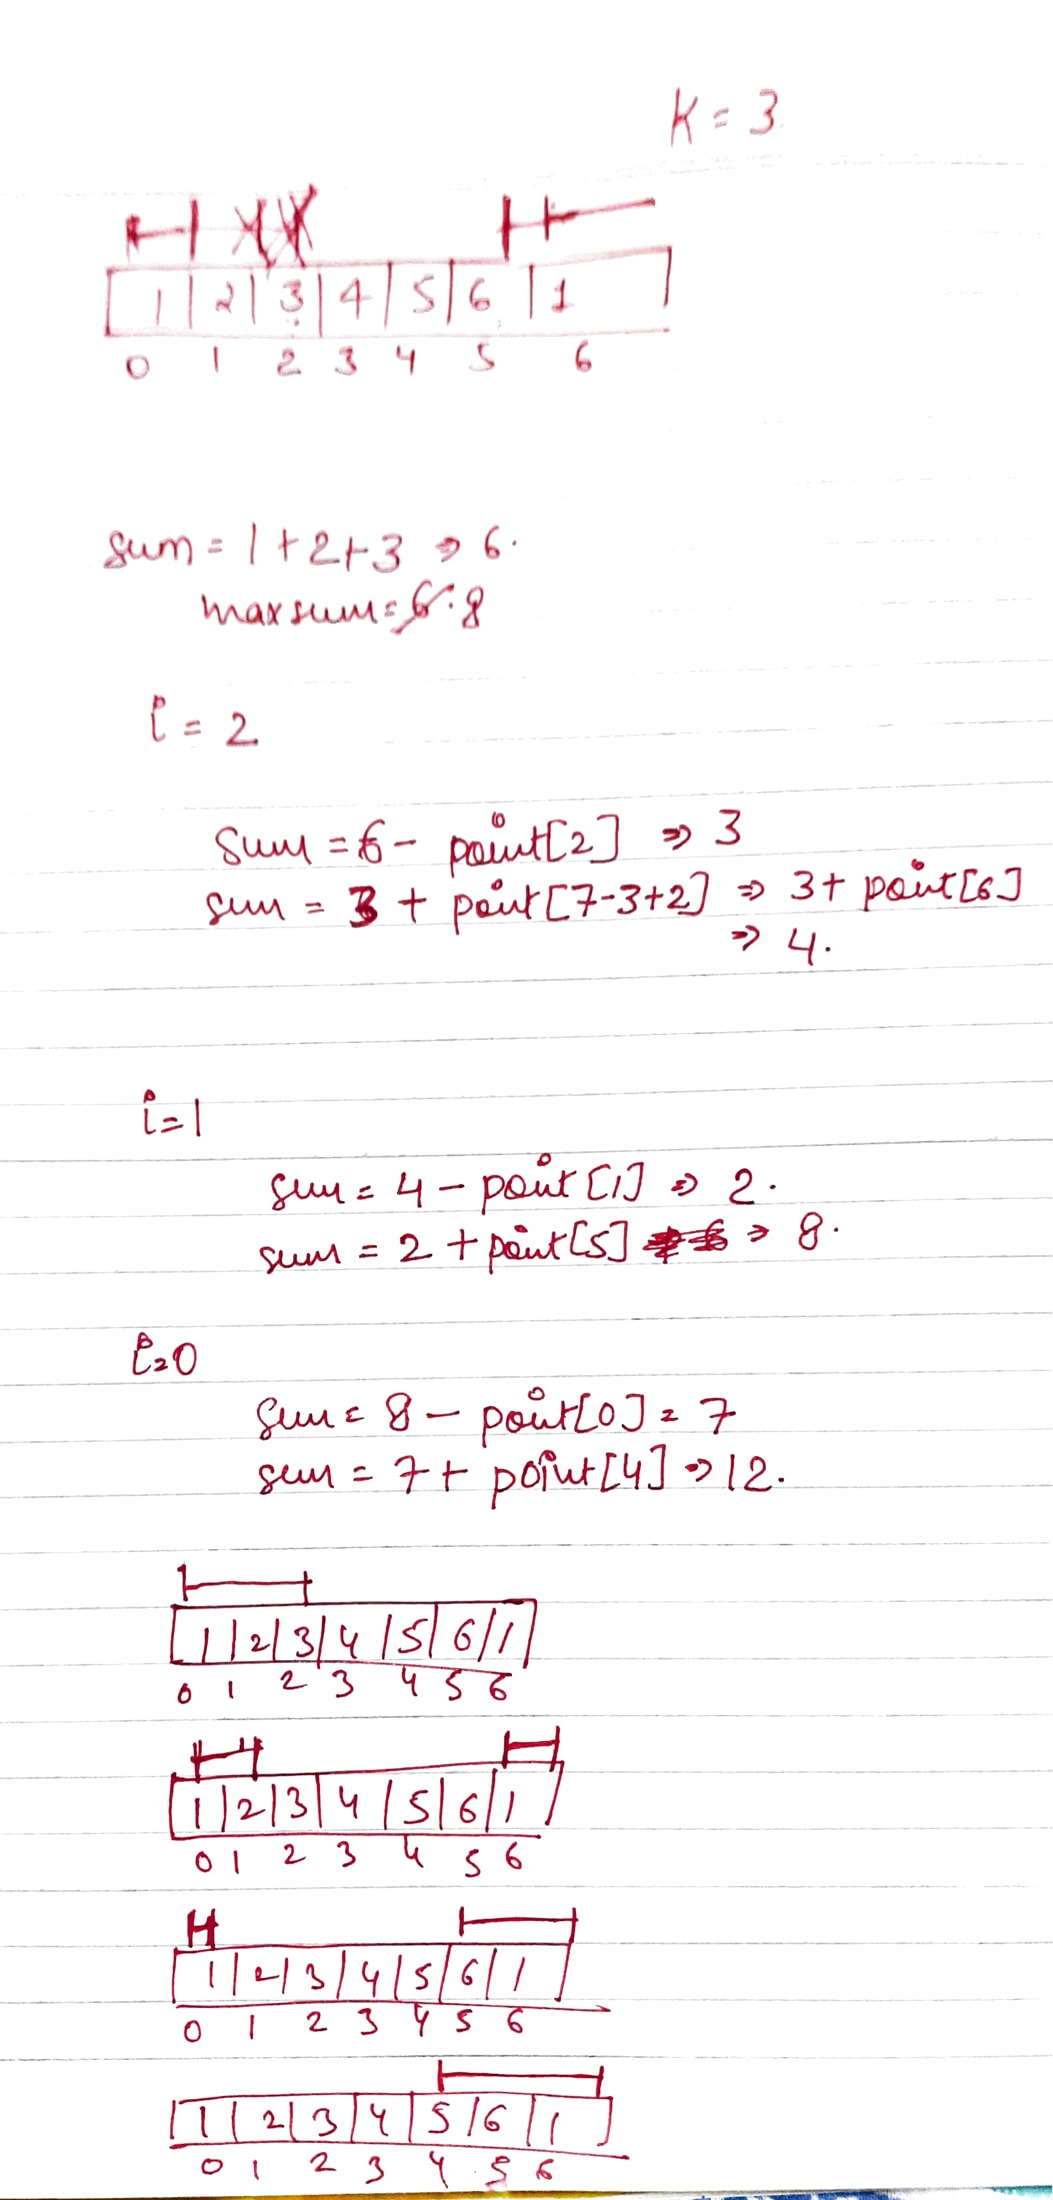 K = 3
1 | 2 | 3 | 4 | 5 | 6 | 1
0 1 2 3 4 5 6
sum = 1+2+3 ⇒ 6.
maxsum = 6. 8
i = 2
sum = 6 - point[2] ⇒ 3
sum = 3 + point[7-3+2] ⇒ 3 + point[6]
⇒ 4.
i=1
sum = 4 - point[1] ⇒ 2.
sum = 2 + point[5] ⇒ 8.
i=0
sum = 8 - point[0] = 7
sum = 7 + point[4] ⇒ 12.
1 | 2 | 3 | 4 | 5 | 6 | 1
0 1 2 3 4 5 6
1 | 2 | 3 | 4 | 5 | 6 | 1
0 1 2 3 4 5 6
1 | 2 | 3 | 4 | 5 | 6 | 1
0 1 2 3 4 5 6
1 | 2 | 3 | 4 | 5 | 6 | 1
0 1 2 3 4 5 6